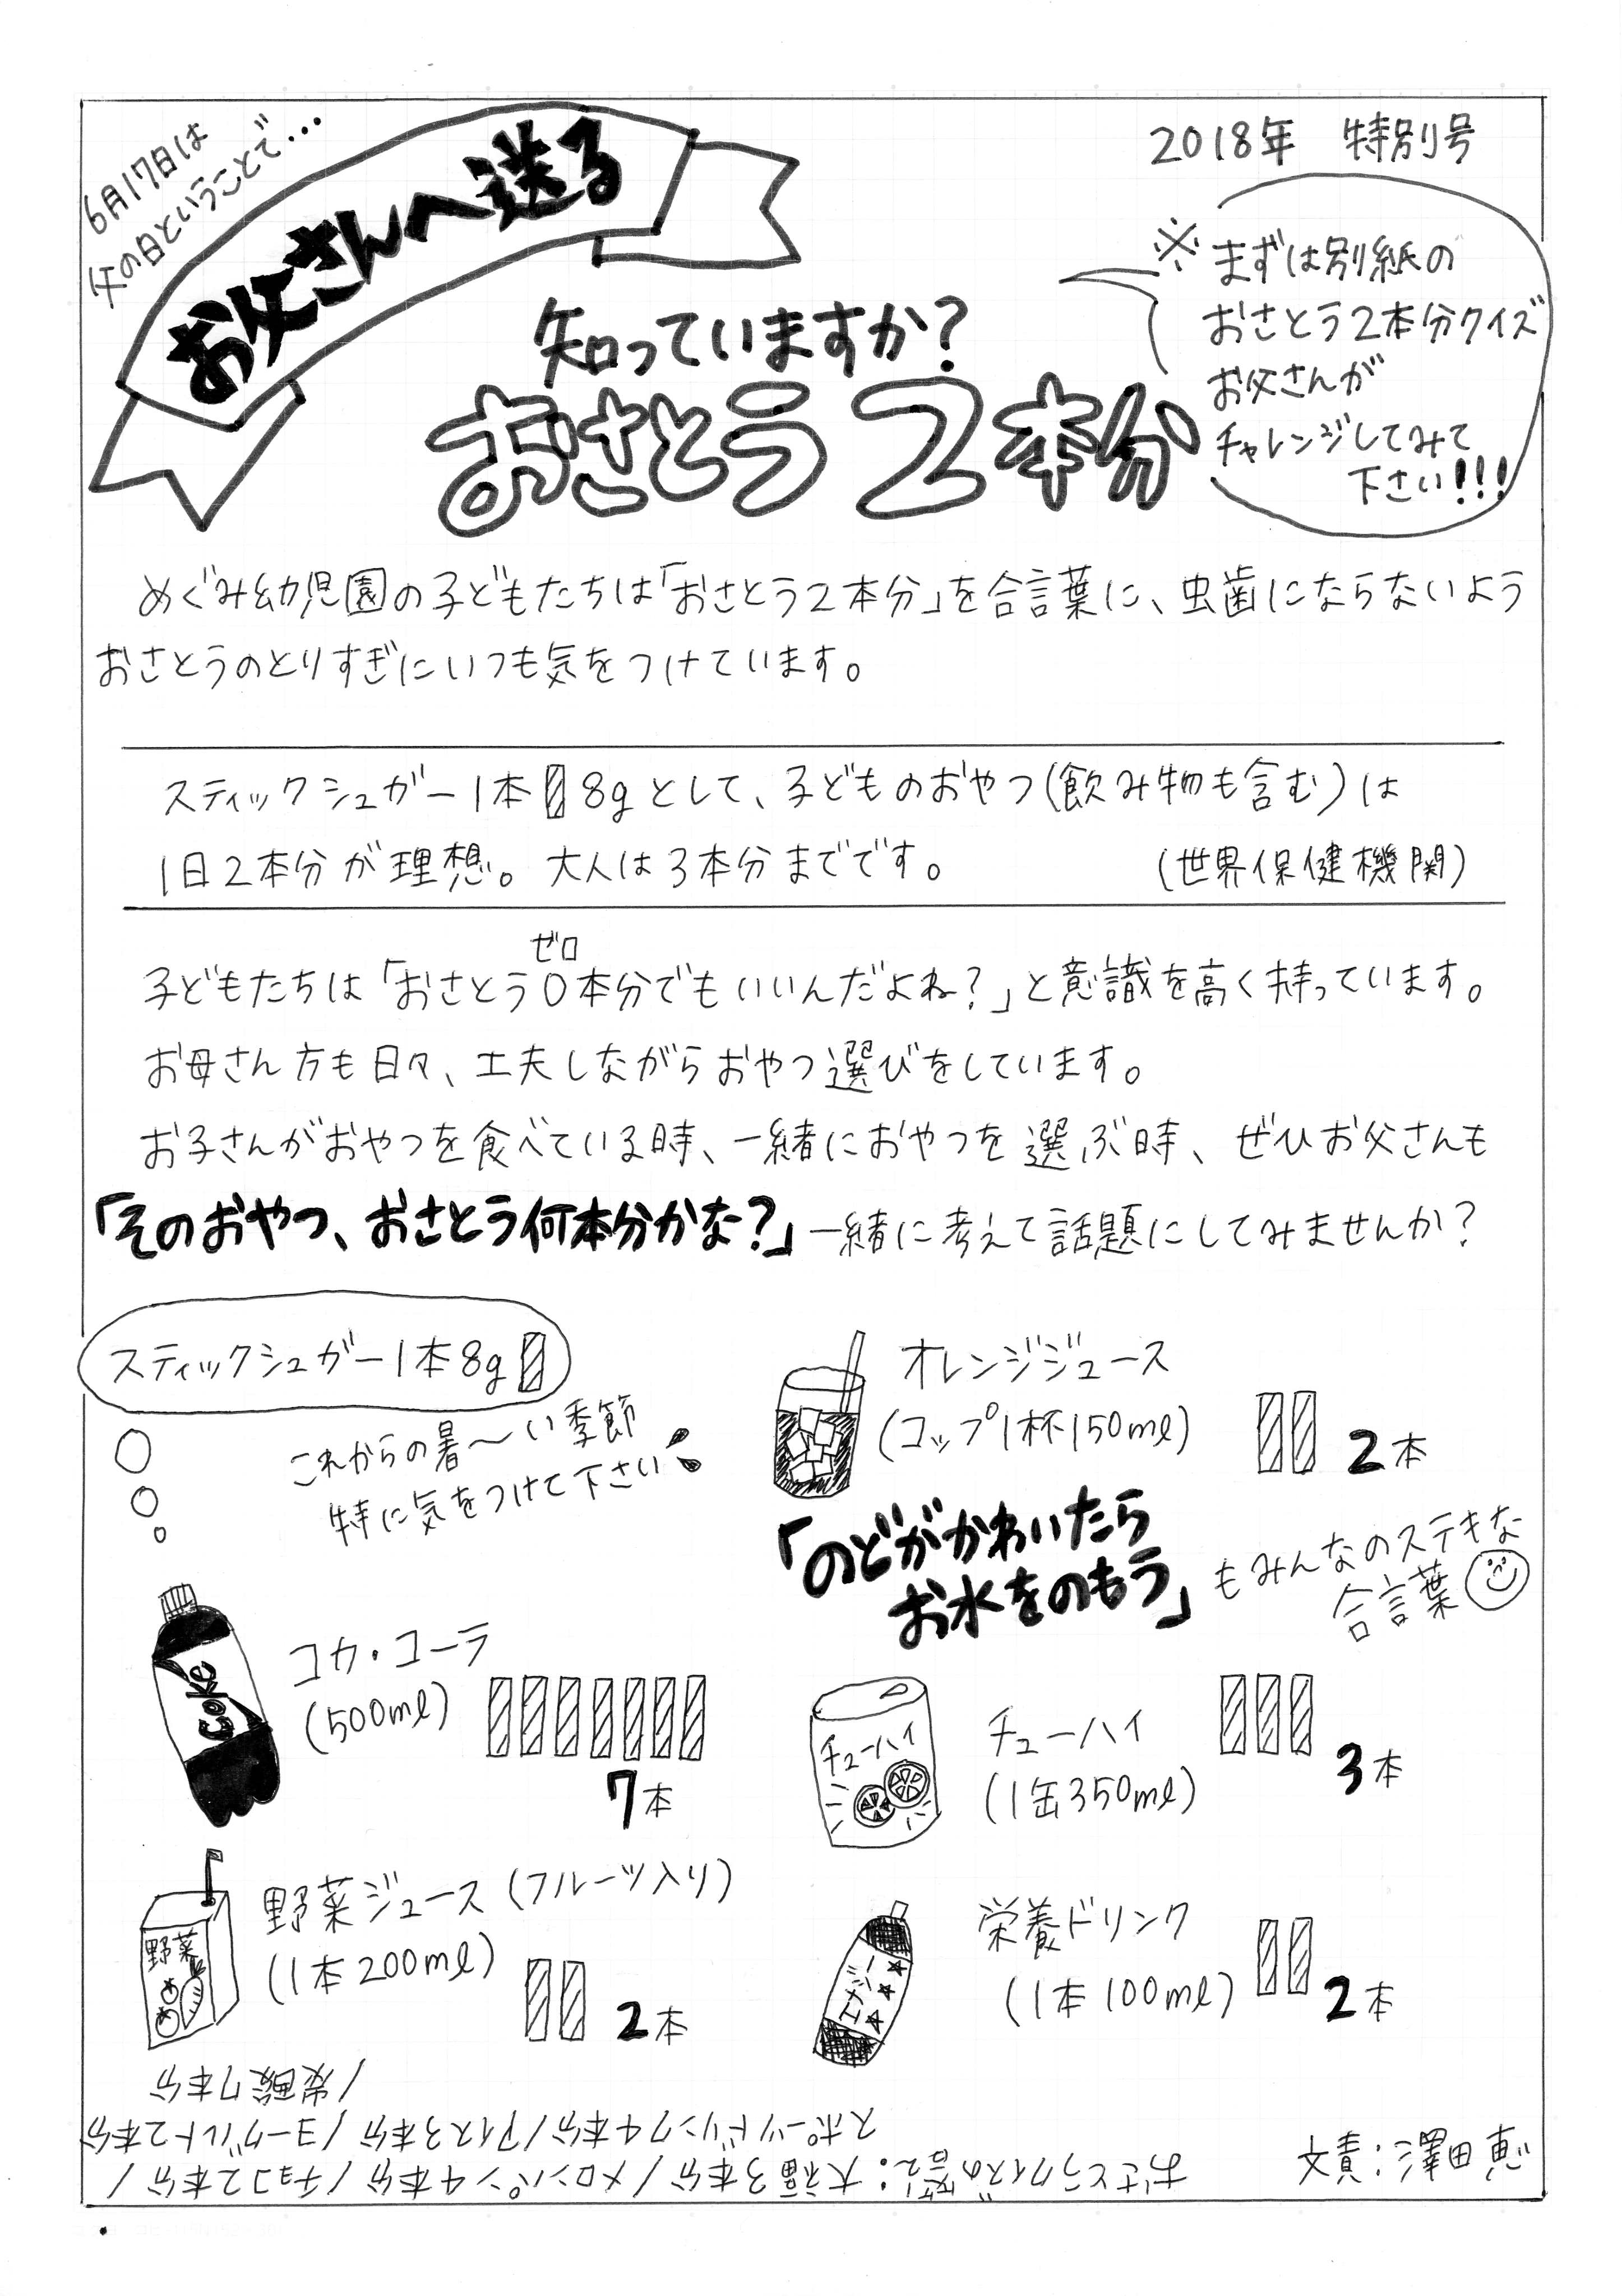 6月17日は
父の日ということで…
お父さんへ送る
2018年 特別号
知っていますか？
おさとう2本分
※まずは別紙の
おさとう2本分クイズ
お父さんが
チャレンジしてみて
下さい!!!
めぐみ幼児園の子どもたちは「おさとう2本分」を合言葉に、虫歯にならないよう
おさとうのとりすぎにいつも気をつけています。
スティックシュガー1本8gとして、子どものおやつ(飲み物も含む)は
1日2本分が理想。大人は3本分までです。 (世界保健機関)
ゼロ
子どもたちは「おさとう0本分でもいいんだよね？」と意識を高く持っています。
お母さん方も日々、工夫しながらおやつ選びをしています。
お子さんがおやつを食べている時、一緒におやつを選ぶ時、ぜひお父さんも
「そのおやつ、おさとう何本分かな？」一緒に考えて話題にしてみませんか？
スティックシュガー1本8g
これからの暑〜い季節
特に気をつけて下さい
オレンジジュース
(コップ1杯150ml)
2本
「のどがかわいたら
お水をのもう」
もみんなのステキな
合言葉
Coke
コカ・コーラ
(500ml)
7本
チューハイ
チューハイ
(1缶350ml)
3本
野菜
野菜ジュース(フルーツ入り)
(1本200ml)
2本
エナジー
栄養ドリンク
(1本100ml)
2本
おさとうクイズの答え：大福3本分/メロンパン4本分/チョコ2本分/
スポーツドリンク4本分/アイス3本分/ヨーグルト2本分
/炭酸7本分
文責：澤田恵